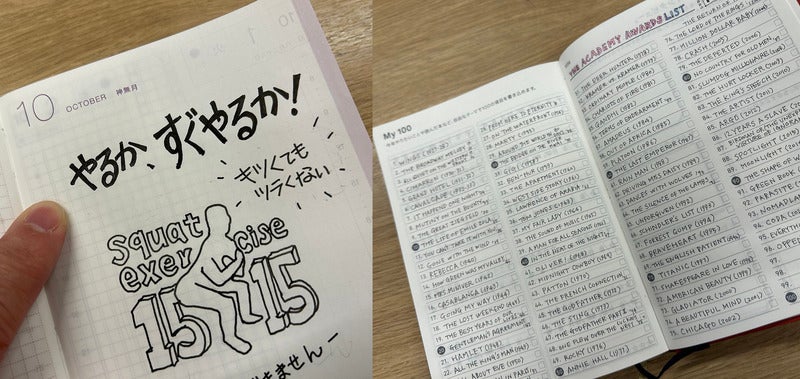 10 OCTOBER 神無月
やるか、すぐやるか！
キツくても
ツラくない
squat
exercise
15 15
きません
My 100
THE ACADEMY AWARDS LIST
1. WINGS
2. THE BROADWAY MELODY
4. CIMARRON
5. GRAND HOTEL
6. CAVALCADE
7. IT HAPPENED ONE NIGHT
8. MUTINY ON THE BOUNTY
9. THE GREAT ZIEGFELD
10 THE LIFE OF EMILE ZOLA
11. YOU CAN'T TAKE IT WITH YOU
12. GONE WITH THE WIND
13. REBECCA (1940)
14. HOW GREEN WAS MY VALLEY
15. MRS. MINIVER (1942)
16. CASABLANCA (1943)
17. GOING MY WAY (1944)
18. THE LOST WEEKEND (1945)
19. THE BEST YEARS OF OUR
20 GENTLEMAN'S AGREEMENT
21. HAMLET (1948)
22. ALL THE KING'S MEN (1949)
23. ALL ABOUT EVE (1950)
26. FROM HERE TO ETERNITY
27. ON THE WATERFRONT
28. MARTY
29. AROUND THE WORLD IN 80
30 THE BRIDGE ON THE RIVER
31. GIGI (1958)
32. BEN-HUR (1959)
33. THE APARTMENT (1960)
34. WEST SIDE STORY (1961)
35. LAWRENCE OF ARABIA
36. TOM JONES (1963)
37. MY FAIR LADY (1964)
38. THE SOUND OF MUSIC (1965)
39. A MAN FOR ALL SEASONS
40 IN THE HEAT OF THE NIGHT
41. OLIVER! (1968)
42. MIDNIGHT COWBOY (1969)
43. PATTON (1970)
44. THE FRENCH CONNECTION
45. THE GODFATHER (1972)
46. THE STING (1973)
47. THE GODFATHER PART II
48. ONE FLEW OVER THE
49. ROCKY (1976)
50 ANNIE HALL (1977)
51. THE DEER HUNTER (1978)
52. KRAMER VS. KRAMER (1979)
53. ORDINARY PEOPLE (1980)
54. CHARIOTS OF FIRE (1981)
55. GANDHI (1982)
56. TERMS OF ENDEARMENT
57. AMADEUS (1984)
58. OUT OF AFRICA (1985)
59. PLATOON (1986)
60 THE LAST EMPEROR (1987)
61. RAIN MAN (1988)
62. DRIVING MISS DAISY (1989)
63. DANCES WITH WOLVES (1990)
64. THE SILENCE OF THE LAMBS
65. UNFORGIVEN (1992)
66. SCHINDLER'S LIST (1993)
67. FOREST GUMP (1994)
68. BRAVEHEART (1995)
69. THE ENGLISH PATIENT (1996)
70 TITANIC (1997)
71. SHAKESPEARE IN LOVE (1998)
72. AMERICAN BEAUTY (1999)
73. GLADIATOR (2000)
74. A BEAUTIFUL MIND (2001)
75. CHICAGO (2002)
76. THE LORD OF THE RINGS
THE RETURN OF
77. MILLION DOLLAR BABY (2004)
78. CRASH (2005)
79. THE DEPARTED (2006)
80 NO COUNTRY FOR OLD MEN
81. SLUMDOG MILLIONAIRE (2008)
82. THE HURT LOCKER (2009)
83. THE KING'S SPEECH (2010)
84. THE ARTIST (2011)
85. ARGO (2012)
86. 12 YEARS A SLAVE
88. SPOTLIGHT
89. MOONLIGHT
90 THE SHAPE OF
91. GREEN BOOK
92. PARASITE
93. NOMADLAND
94. CODA
95. EVERYTHING
96. OPPEN
97.
98.
99.